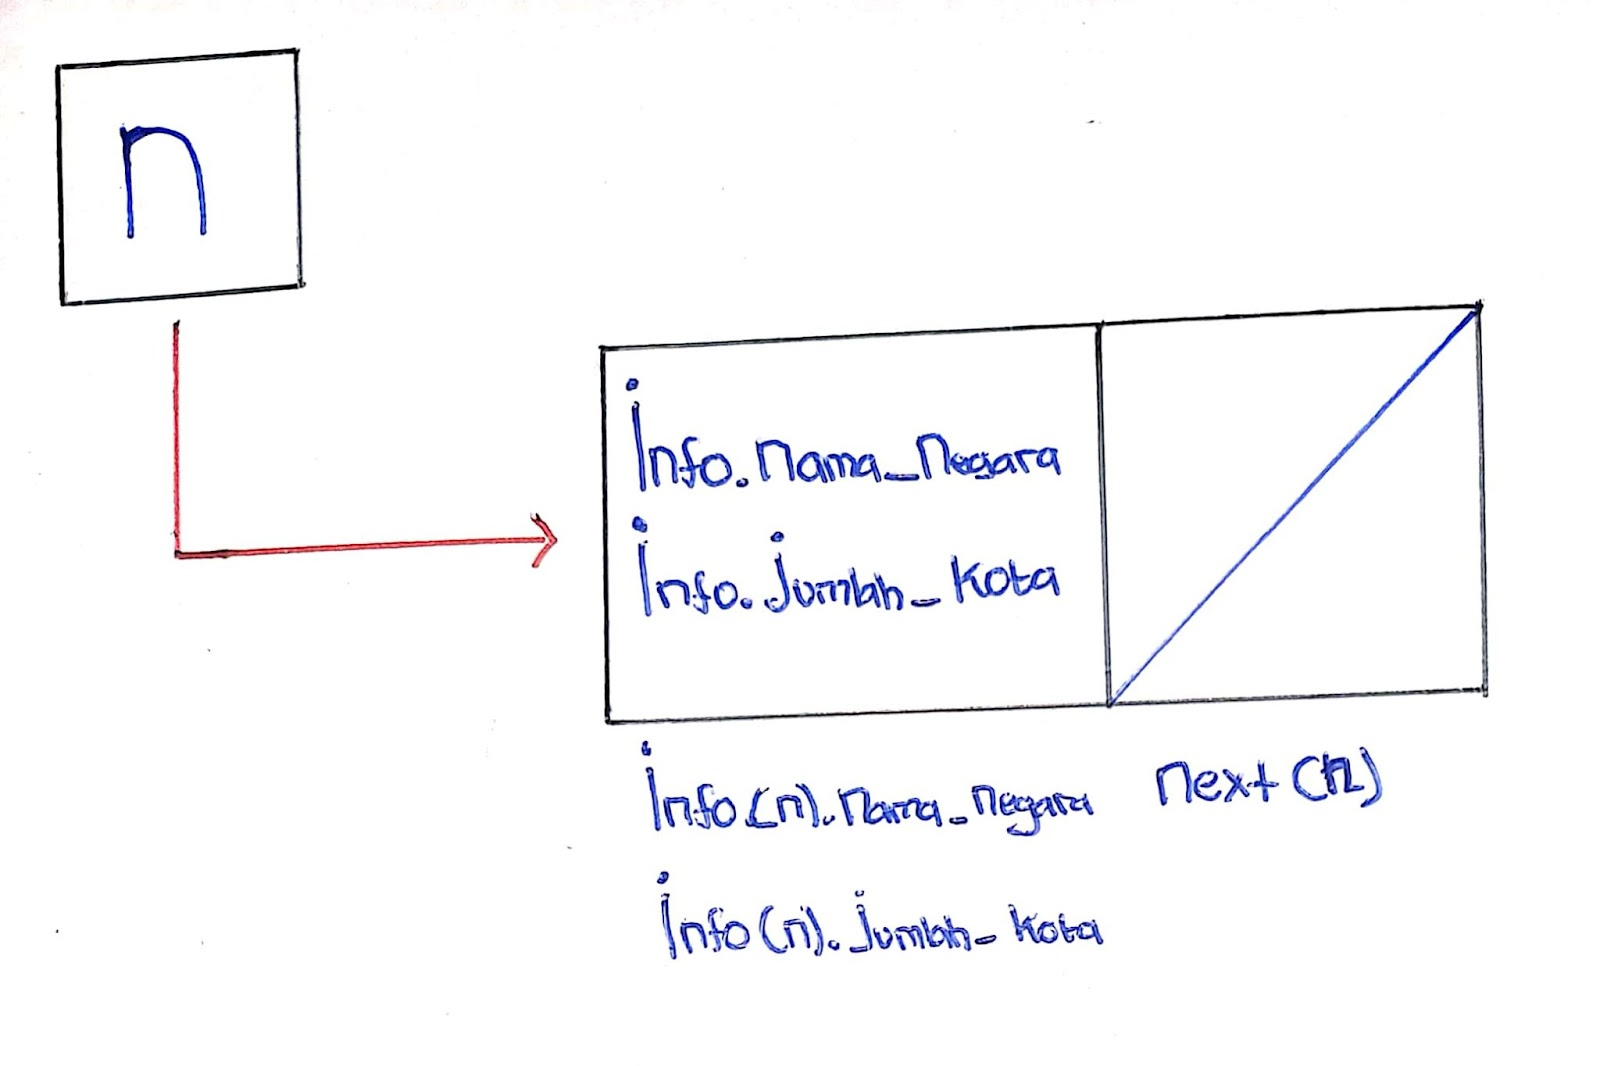 n
Info.nama_negara
Info.jumlah_kota
Info.(n).nama_negara next(n)
Info(n).jumlah_kota